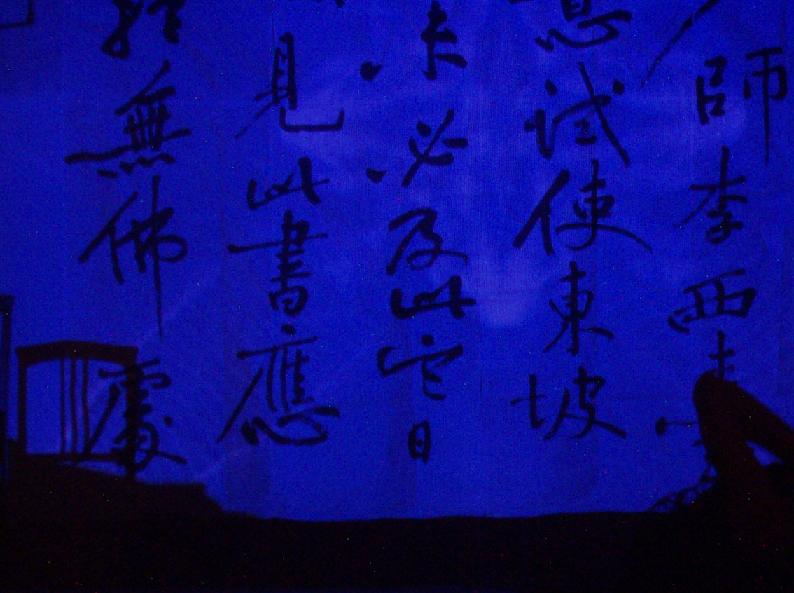 師李西
意試使東坡
未必及此它日
見此書應
無佛處